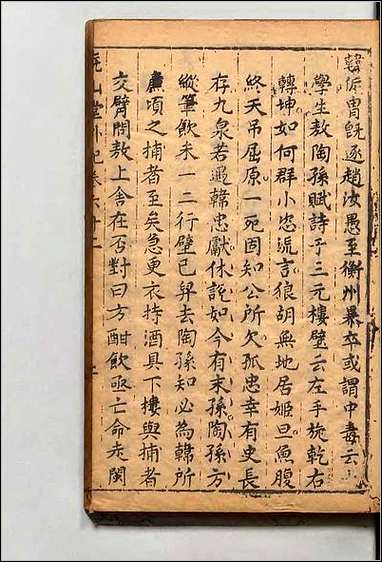 韓侂冑旣逐趙汝愚至衡州暴卒或謂中毒云
學生敖陶孫賦詩于三元樓壁云左手旋乾右
轉坤如何群小恣流言狼胡無地居姬旦魚腹
終天吊屈原一死固知公所欠孤忠幸有史長
存九泉若遇韓忠獻休說如今有末孫陶孫方
縱筆飲未一二行壁已舁去陶孫知必為韓所
廉頃之捕者至矣急更衣持酒具下樓與捕者
交臂問敖上舍在否對曰方酣飲亟亡命走閩
堯山堂外紀卷六十二